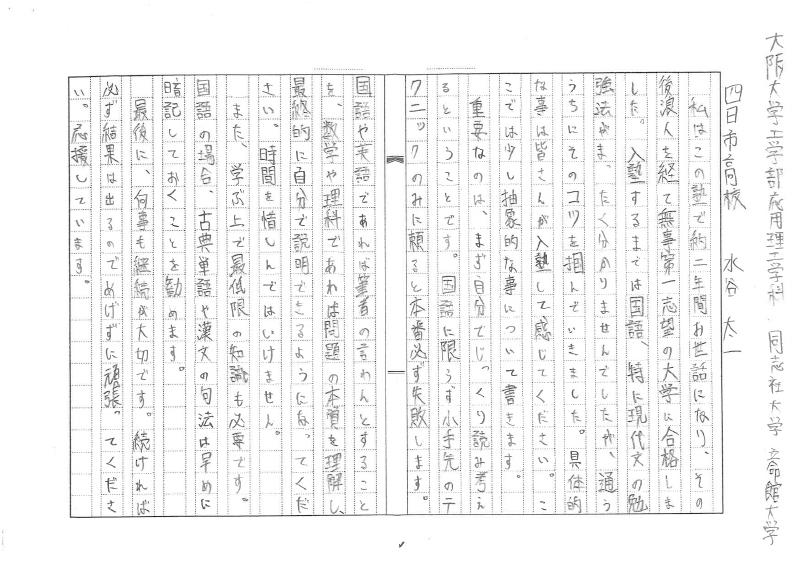 大阪大学工学部応用理工学科　同志社大学　立命館大学
四日市高校　水谷　太一
私はこの塾で約二年間お世話になり、その
後浪人を経て無事第一志望の大学に合格しま
した。入塾するまでは国語、特に現代文の勉
強法がまったく分かりませんでしたが、通う
うちにそのコツを掴んでいきました。具体的
な事は皆さんが入塾して感じてください。こ
こでは少し抽象的な事について書きます。
重要なのは、まず自分でじっくり読み考え
るということです。国語に限らず小手先のテ
クニックのみに頼ると本番必ず失敗します。
国語や英語であれば筆者の言わんとすること
を、数学や理科であれば問題の本質を理解し、
最終的に自分で説明できるようになってくだ
さい。時間を惜しんではいけません。
また、学ぶ上で最低限の知識も必要です。
国語の場合、古典単語や漢文の句法は早めに
暗記しておくことを勧めます。
最後に、何事も継続が大切です。続ければ
必ず結果は出るのでめげずに頑張ってくださ
い。応援しています。